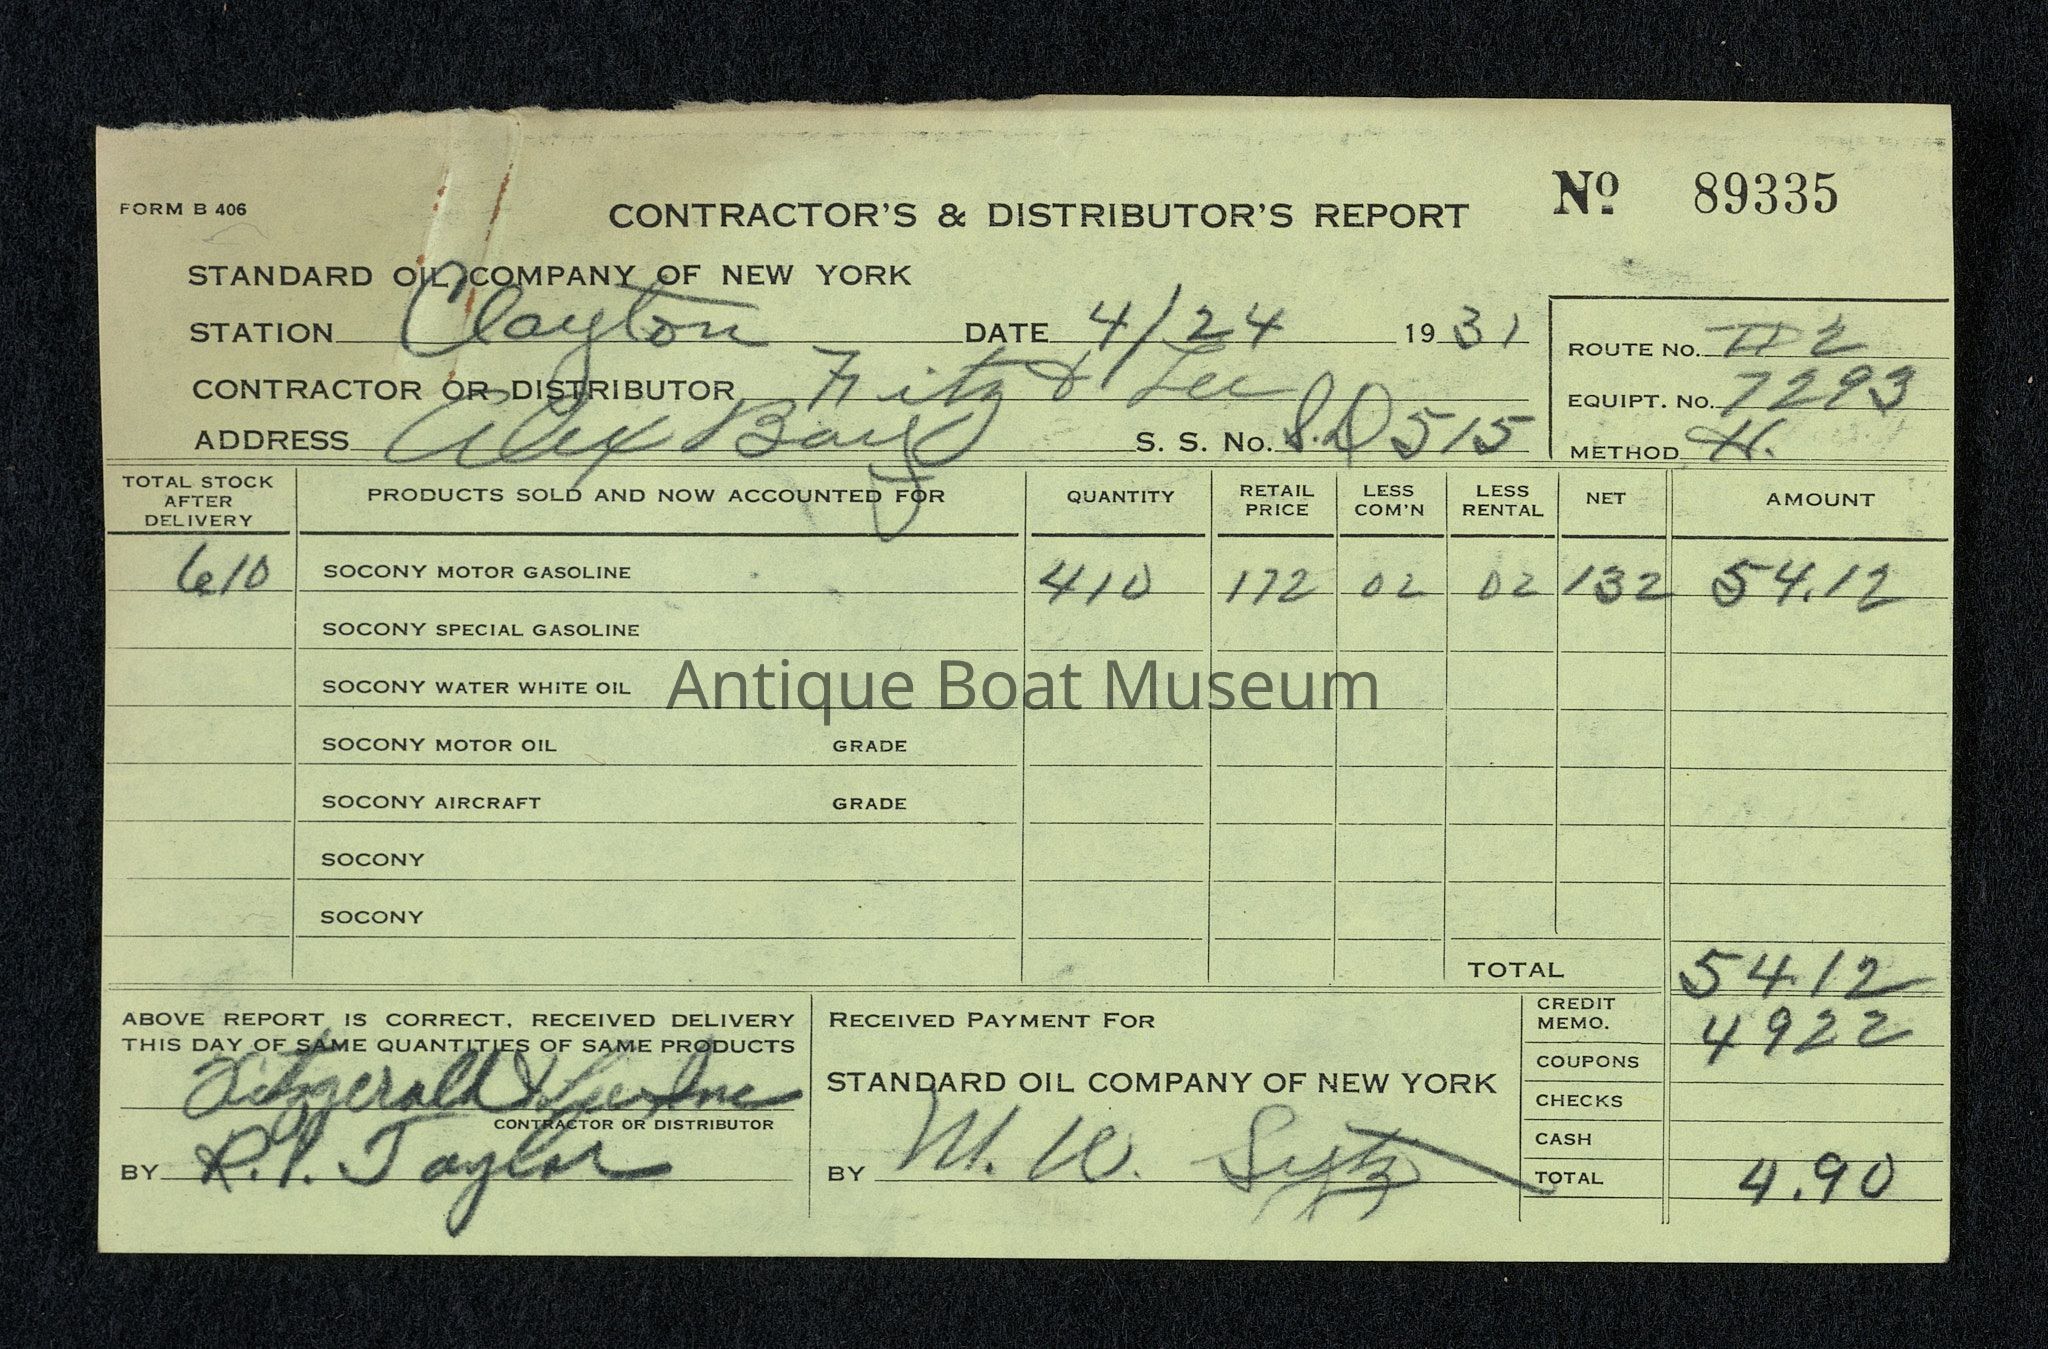 FORM B 406
CONTRACTOR'S & DISTRIBUTOR'S REPORT
No 89335
STANDARD OIL COMPANY OF NEW YORK
STATION Clayton DATE 4/24 1931
ROUTE No. 2
CONTRACTOR OR DISTRIBUTOR Fitz & Lee
EQUIPT. No. 7293
ADDRESS Alex Bay S. S. No. S.D 515
METHOD H.
TOTAL STOCK AFTER DELIVERY PRODUCTS SOLD AND NOW ACCOUNTED FOR QUANTITY RETAIL PRICE LESS COM'N LESS RENTAL NET AMOUNT
610 SOCONY MOTOR GASOLINE 410 172 02 02 132 54.12
SOCONY SPECIAL GASOLINE
SOCONY WATER WHITE OIL
Antique Boat Museum
SOCONY MOTOR OIL GRADE
SOCONY AIRCRAFT GRADE
SOCONY
SOCONY
TOTAL 54.12
ABOVE REPORT IS CORRECT, RECEIVED DELIVERY
THIS DAY OF SAME QUANTITIES OF SAME PRODUCTS
Fitzgerald & Lee Inc
CONTRACTOR OR DISTRIBUTOR
BY R. I. Taylor
RECEIVED PAYMENT FOR
STANDARD OIL COMPANY OF NEW YORK
BY M. W.
CREDIT MEMO. 4922
COUPONS
CHECKS
CASH
TOTAL 4.90